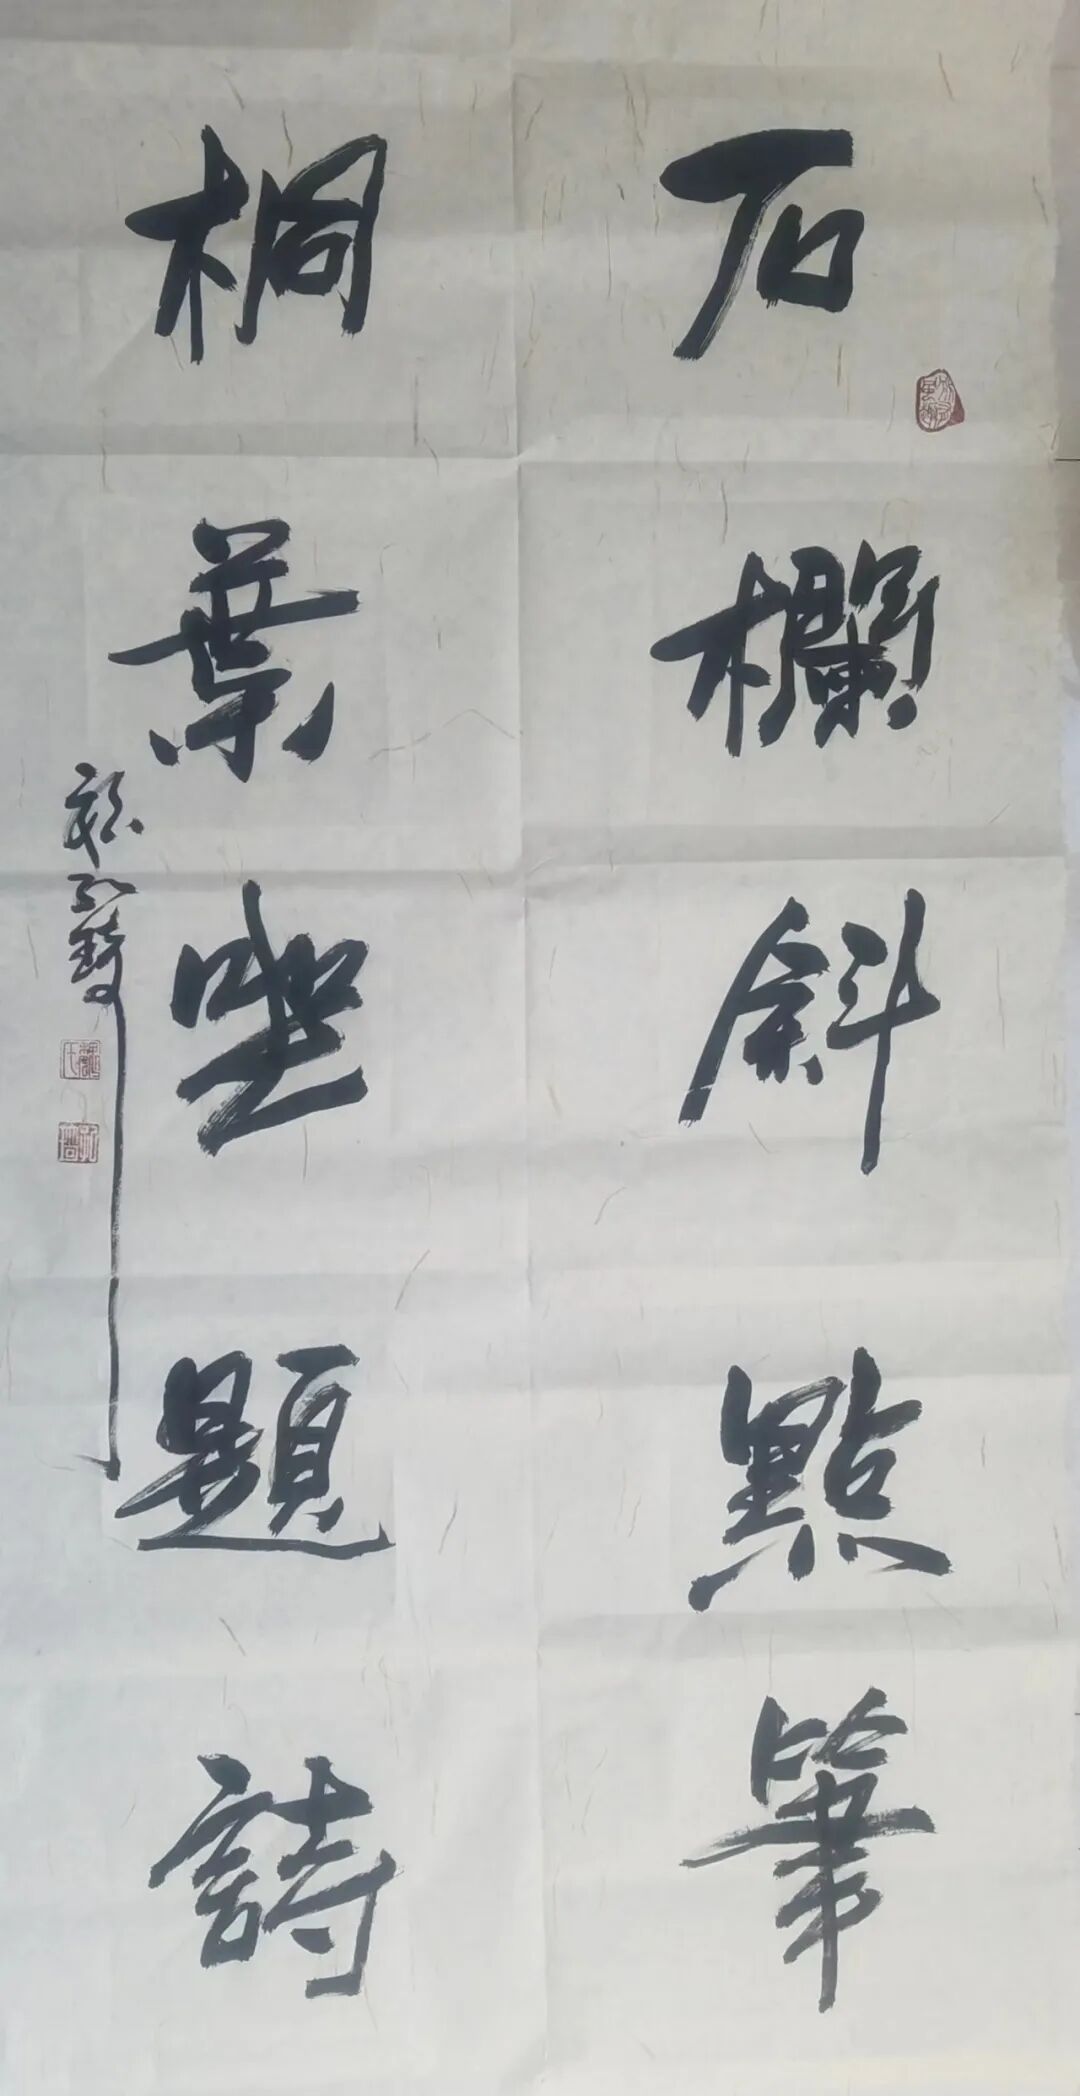 石欄斜點筆
桐葉坐題詩